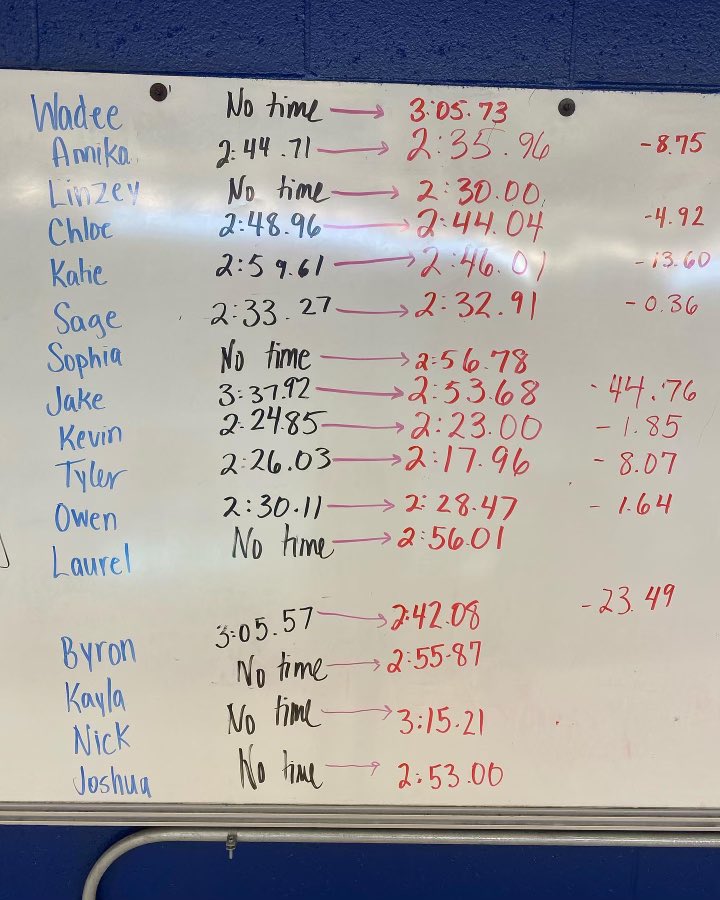 Wadee No time → 3:05.73
Annika 2:44.71 → 2:35.96 -8.75
Linzey No time → 2:30.00
Chloe 2:48.96 → 2:44.04 -4.92
Katie 2:59.61 → 2:46.01 -13.60
Sage 2:33.27 → 2:32.91 -0.36
Sophia No time → 2:56.78
Jake 3:37.92 → 2:53.68 -44.76
Kevin 2:24.85 → 2:23.00 -1.85
Tyler 2:26.03 → 2:17.96 -8.07
Owen 2:30.11 → 2:28.47 -1.64
Laurel No time → 2:56.01
Byron 3:05.57 → 2:42.08 -23.49
Kayla No time → 2:55.87
Nick No time → 3:15.21
Joshua No time → 2:53.00